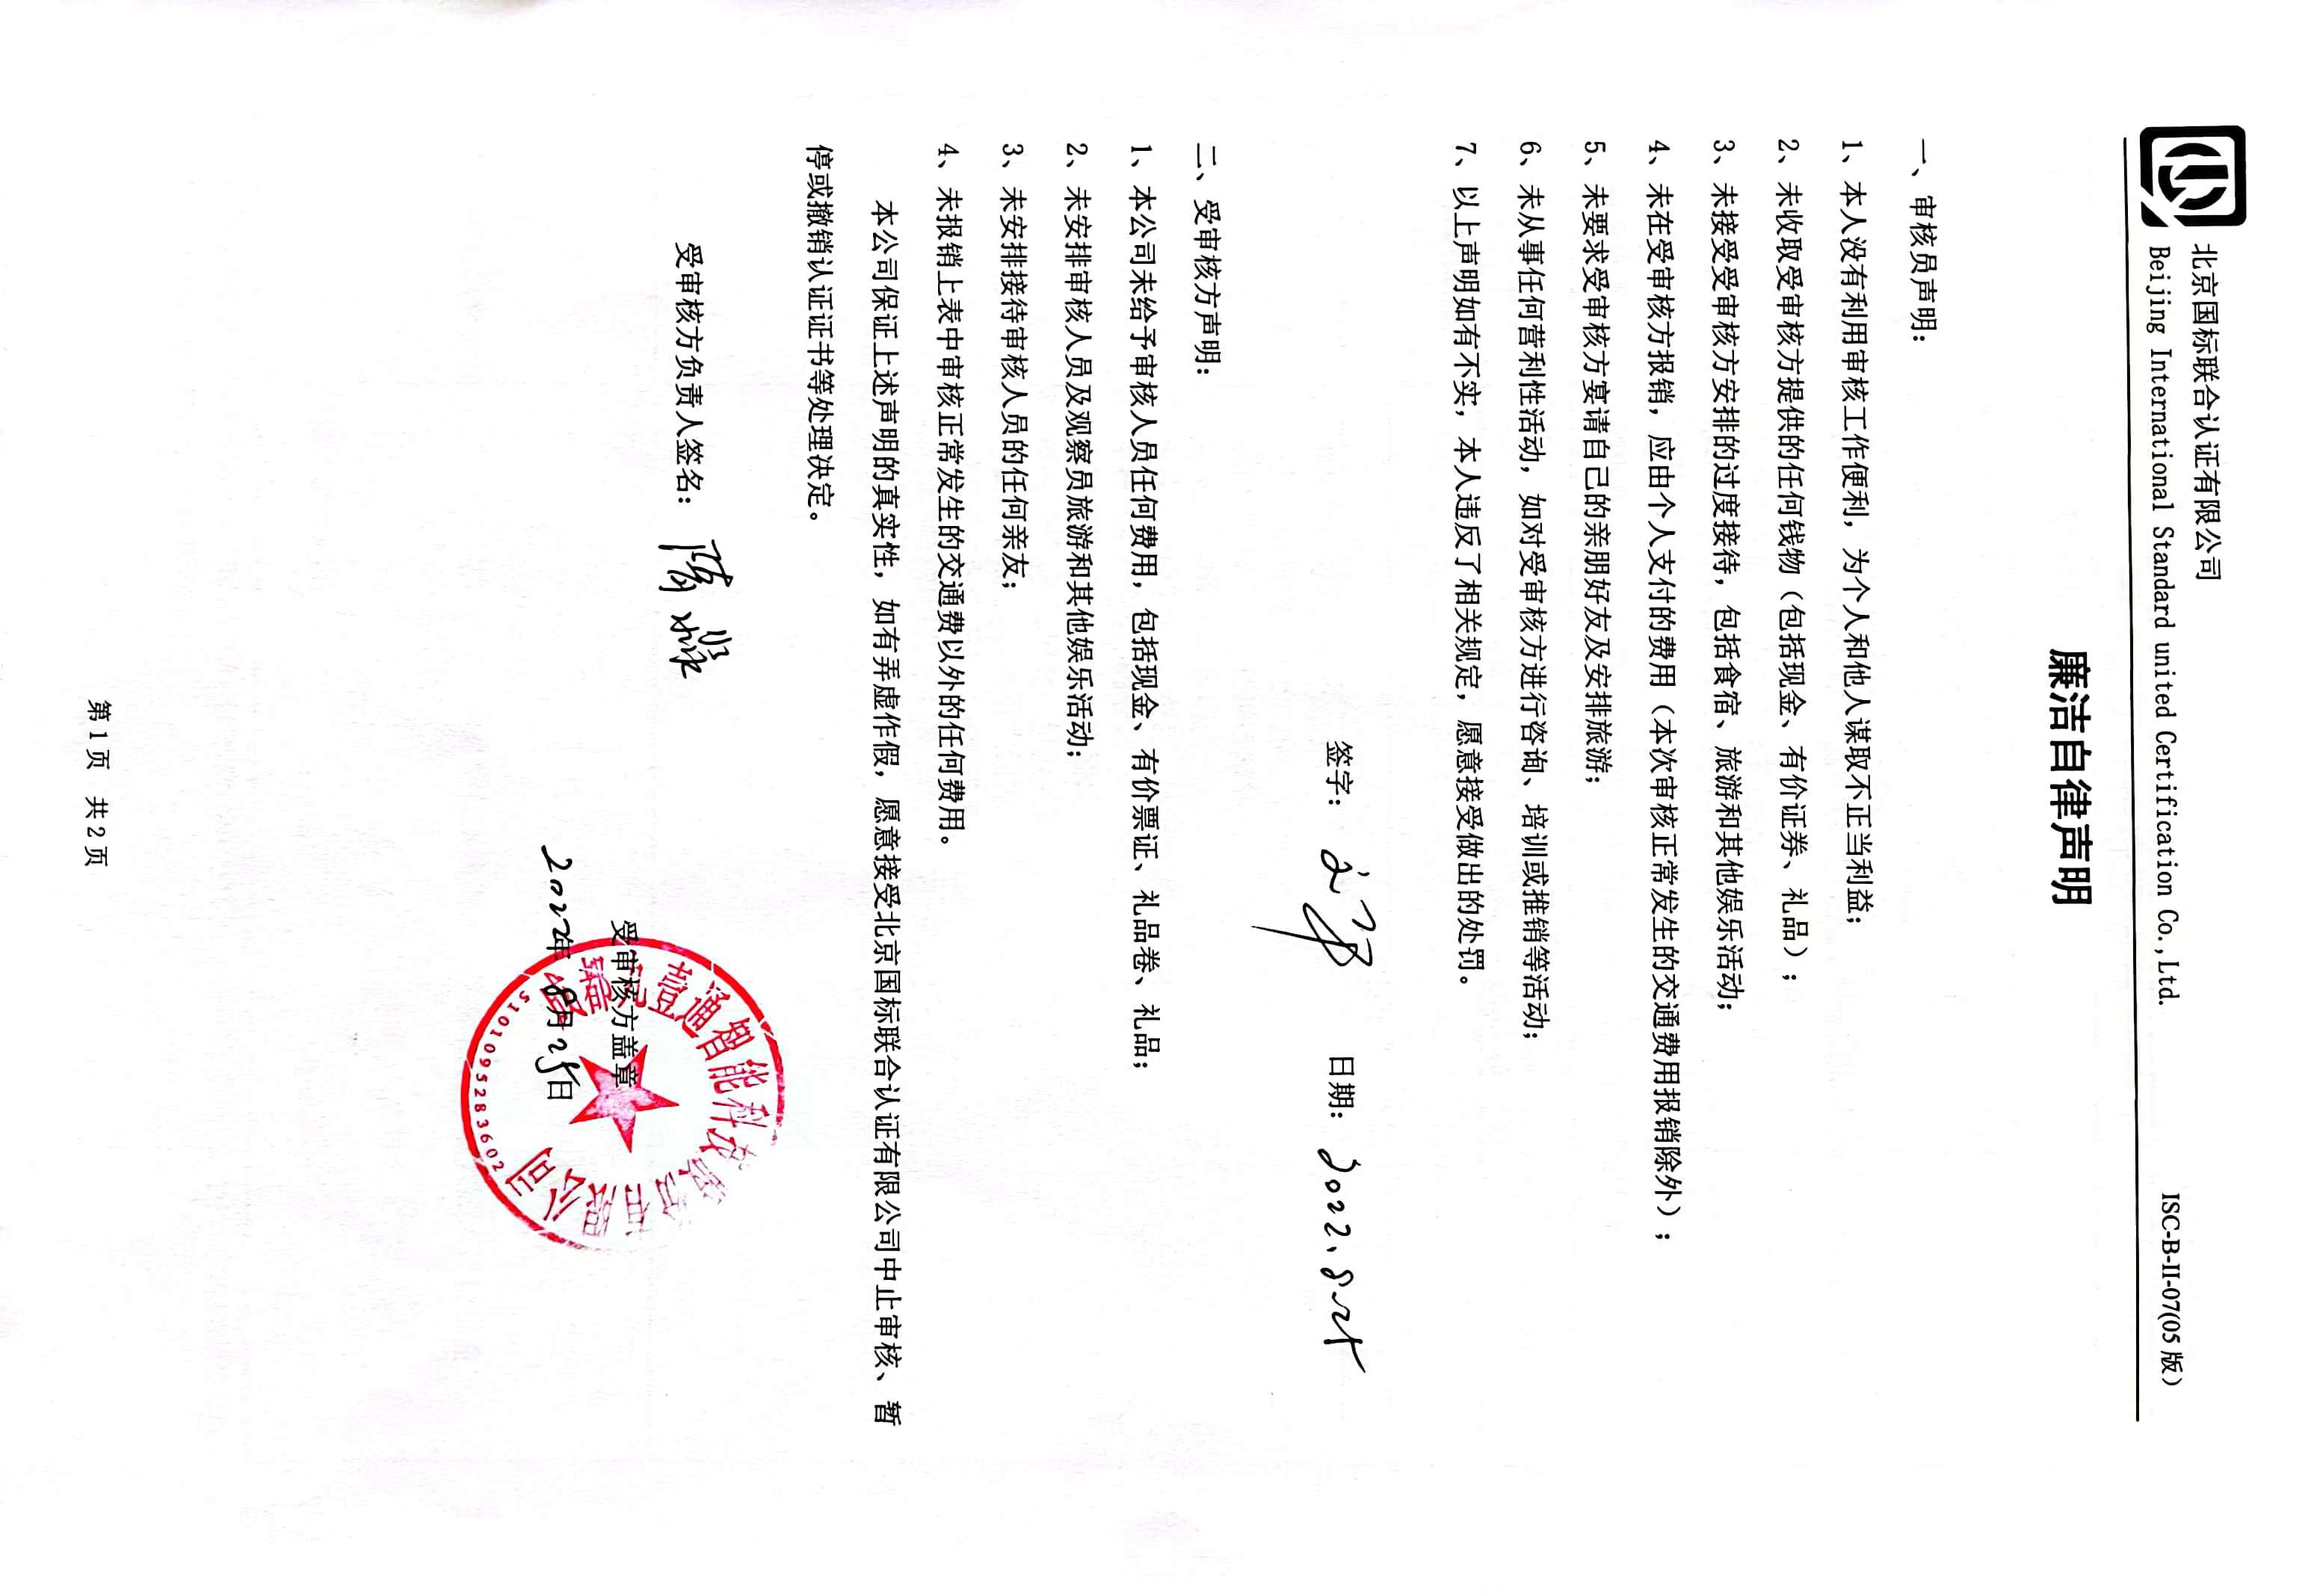 北京国标联合认证有限公司
Beijing International Standard united Certification Co.,Ltd.
ISC-B-II-07(05 版)
廉洁自律声明
一、审核员声明:
1、本人没有利用审核工作便利，为个人和他人谋取不正当利益;
2、未收取受审核方提供的任何钱物（包括现金、有价证券、礼品）;
3、未接受受审核方安排的过度接待，包括食宿、旅游和其他娱乐活动;
4、未在受审核方报销，应由个人支付的费用（本次审核正常发生的交通费用报销除外）;
5、未要求受审核方宴请自己的亲朋好友及安排旅游;
6、未从事任何营利性活动，如对受审核方进行咨询、培训或推销等活动;
7、以上声明如有不实，本人违反了相关规定，愿意接受做出的处罚。
签字: 日期: 2022.8.25
二、受审核方声明:
1、本公司未给予审核人员任何费用，包括现金、有价票证、礼品卷、礼品;
2、未安排审核人员及观察员旅游和其他娱乐活动;
3、未安排接待审核人员的任何亲友;
4、未报销上表中审核正常发生的交通费以外的任何费用。
本公司保证上述声明的真实性，如有弄虚作假，愿意接受北京国标联合认证有限公司中止审核、暂
停或撤销认证证书等处理决定。
受审核方负责人签名:
受审核方盖章
2022年8月25日
壹通智能科技股份有限公司
5101095283602
第1页 共2页